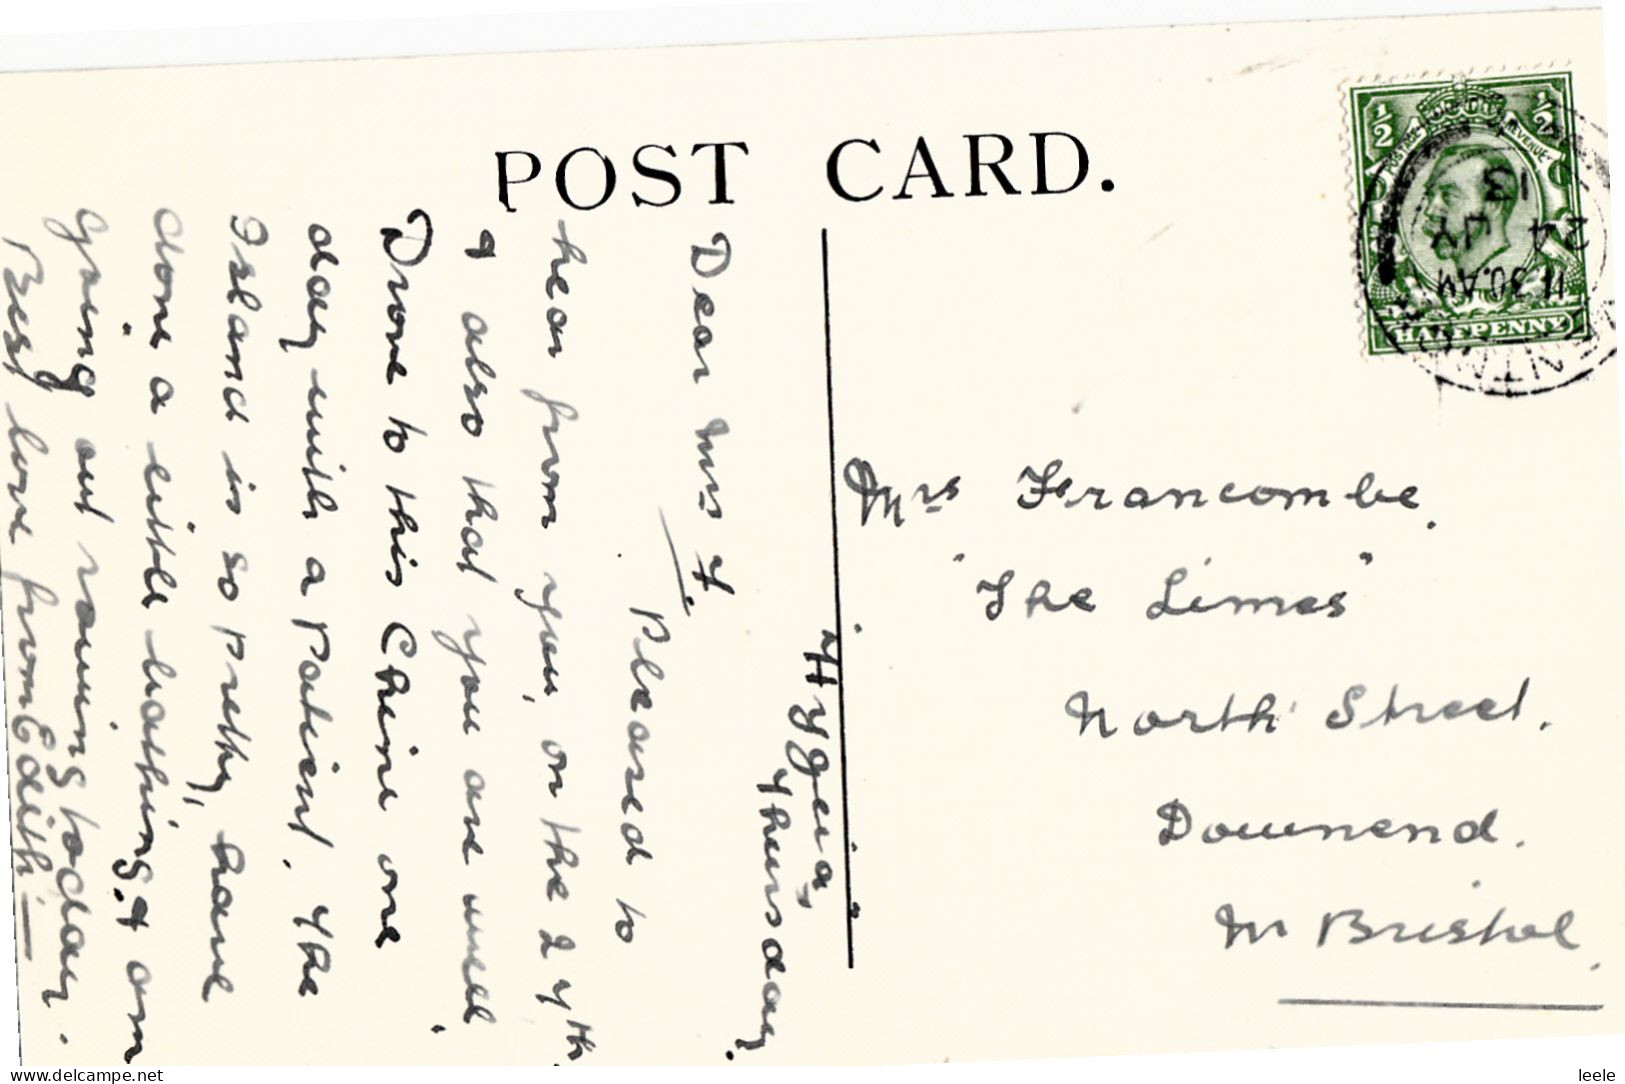 POST CARD.
Hygeia,
Thursday.
Dear Mrs F.
Pleased to
hear from you, on the 24th
& also that you are well.
Drove to this Chine one
day with a Patient. The
Island is so pretty, have
done a little bathing, & am
going out rowing today.
Best love from Edith
Mrs Francombe.
"The Limes"
North Street.
Downend.
Nr Bristol.
½ ½
POSTAGE REVENUE
HALFPENNY
11.30.AM
24 JY
13
delcampe.net
leele